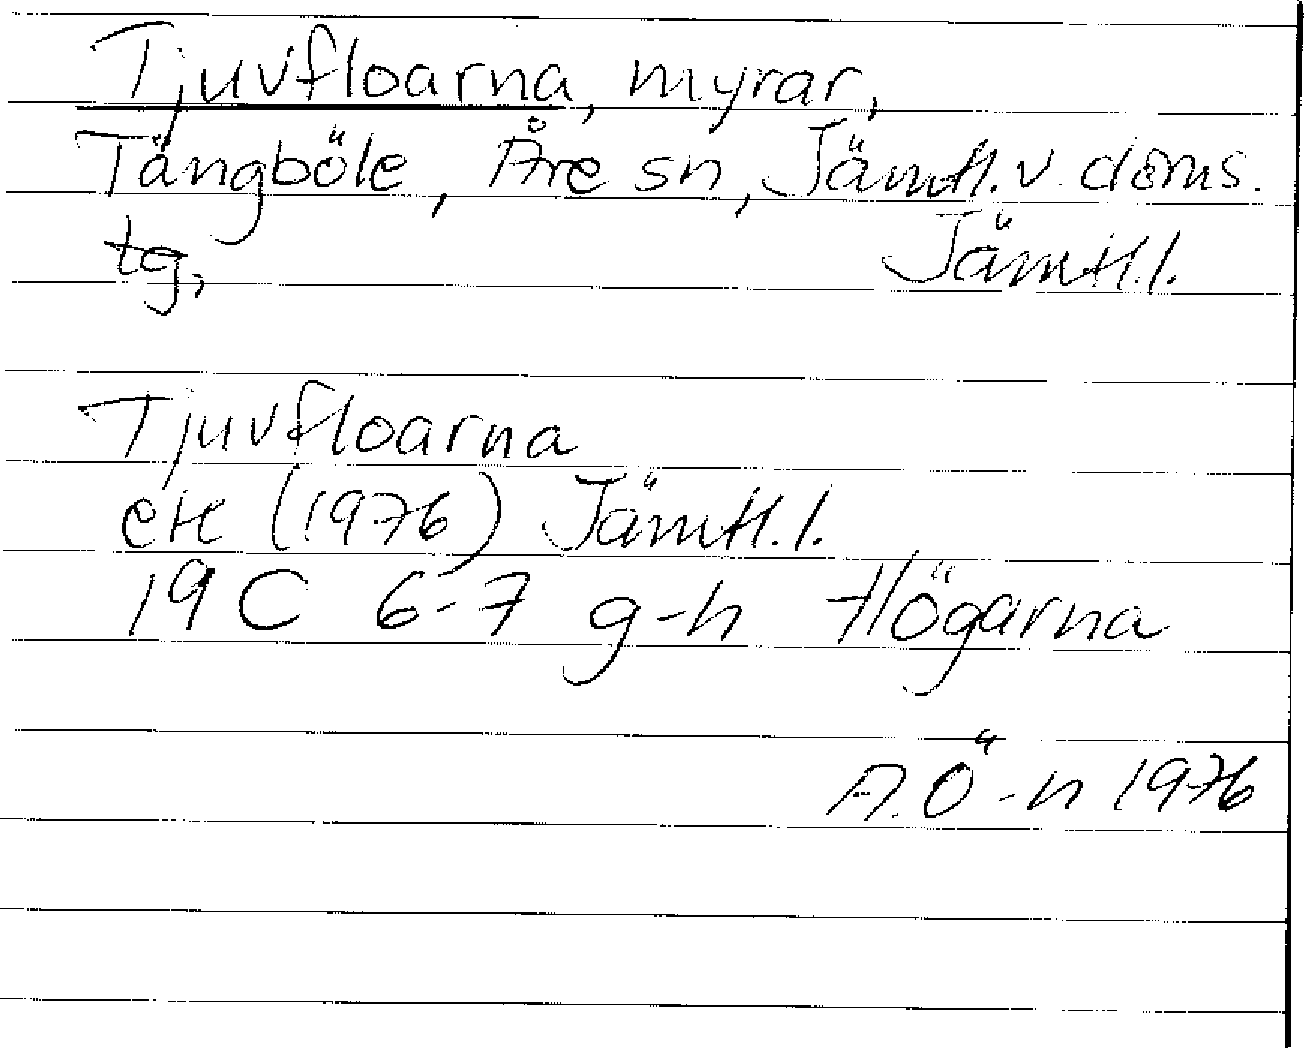 Tjuvfloarna, myrar,
Tängböle, Åre sn, Jämtl. v. doms.
tg, Jämtl. l.
Tjuvfloarna
ek (1976) Jämtl. l.
19 C 6-7 g-h Högarna
A. Ö-n 1976